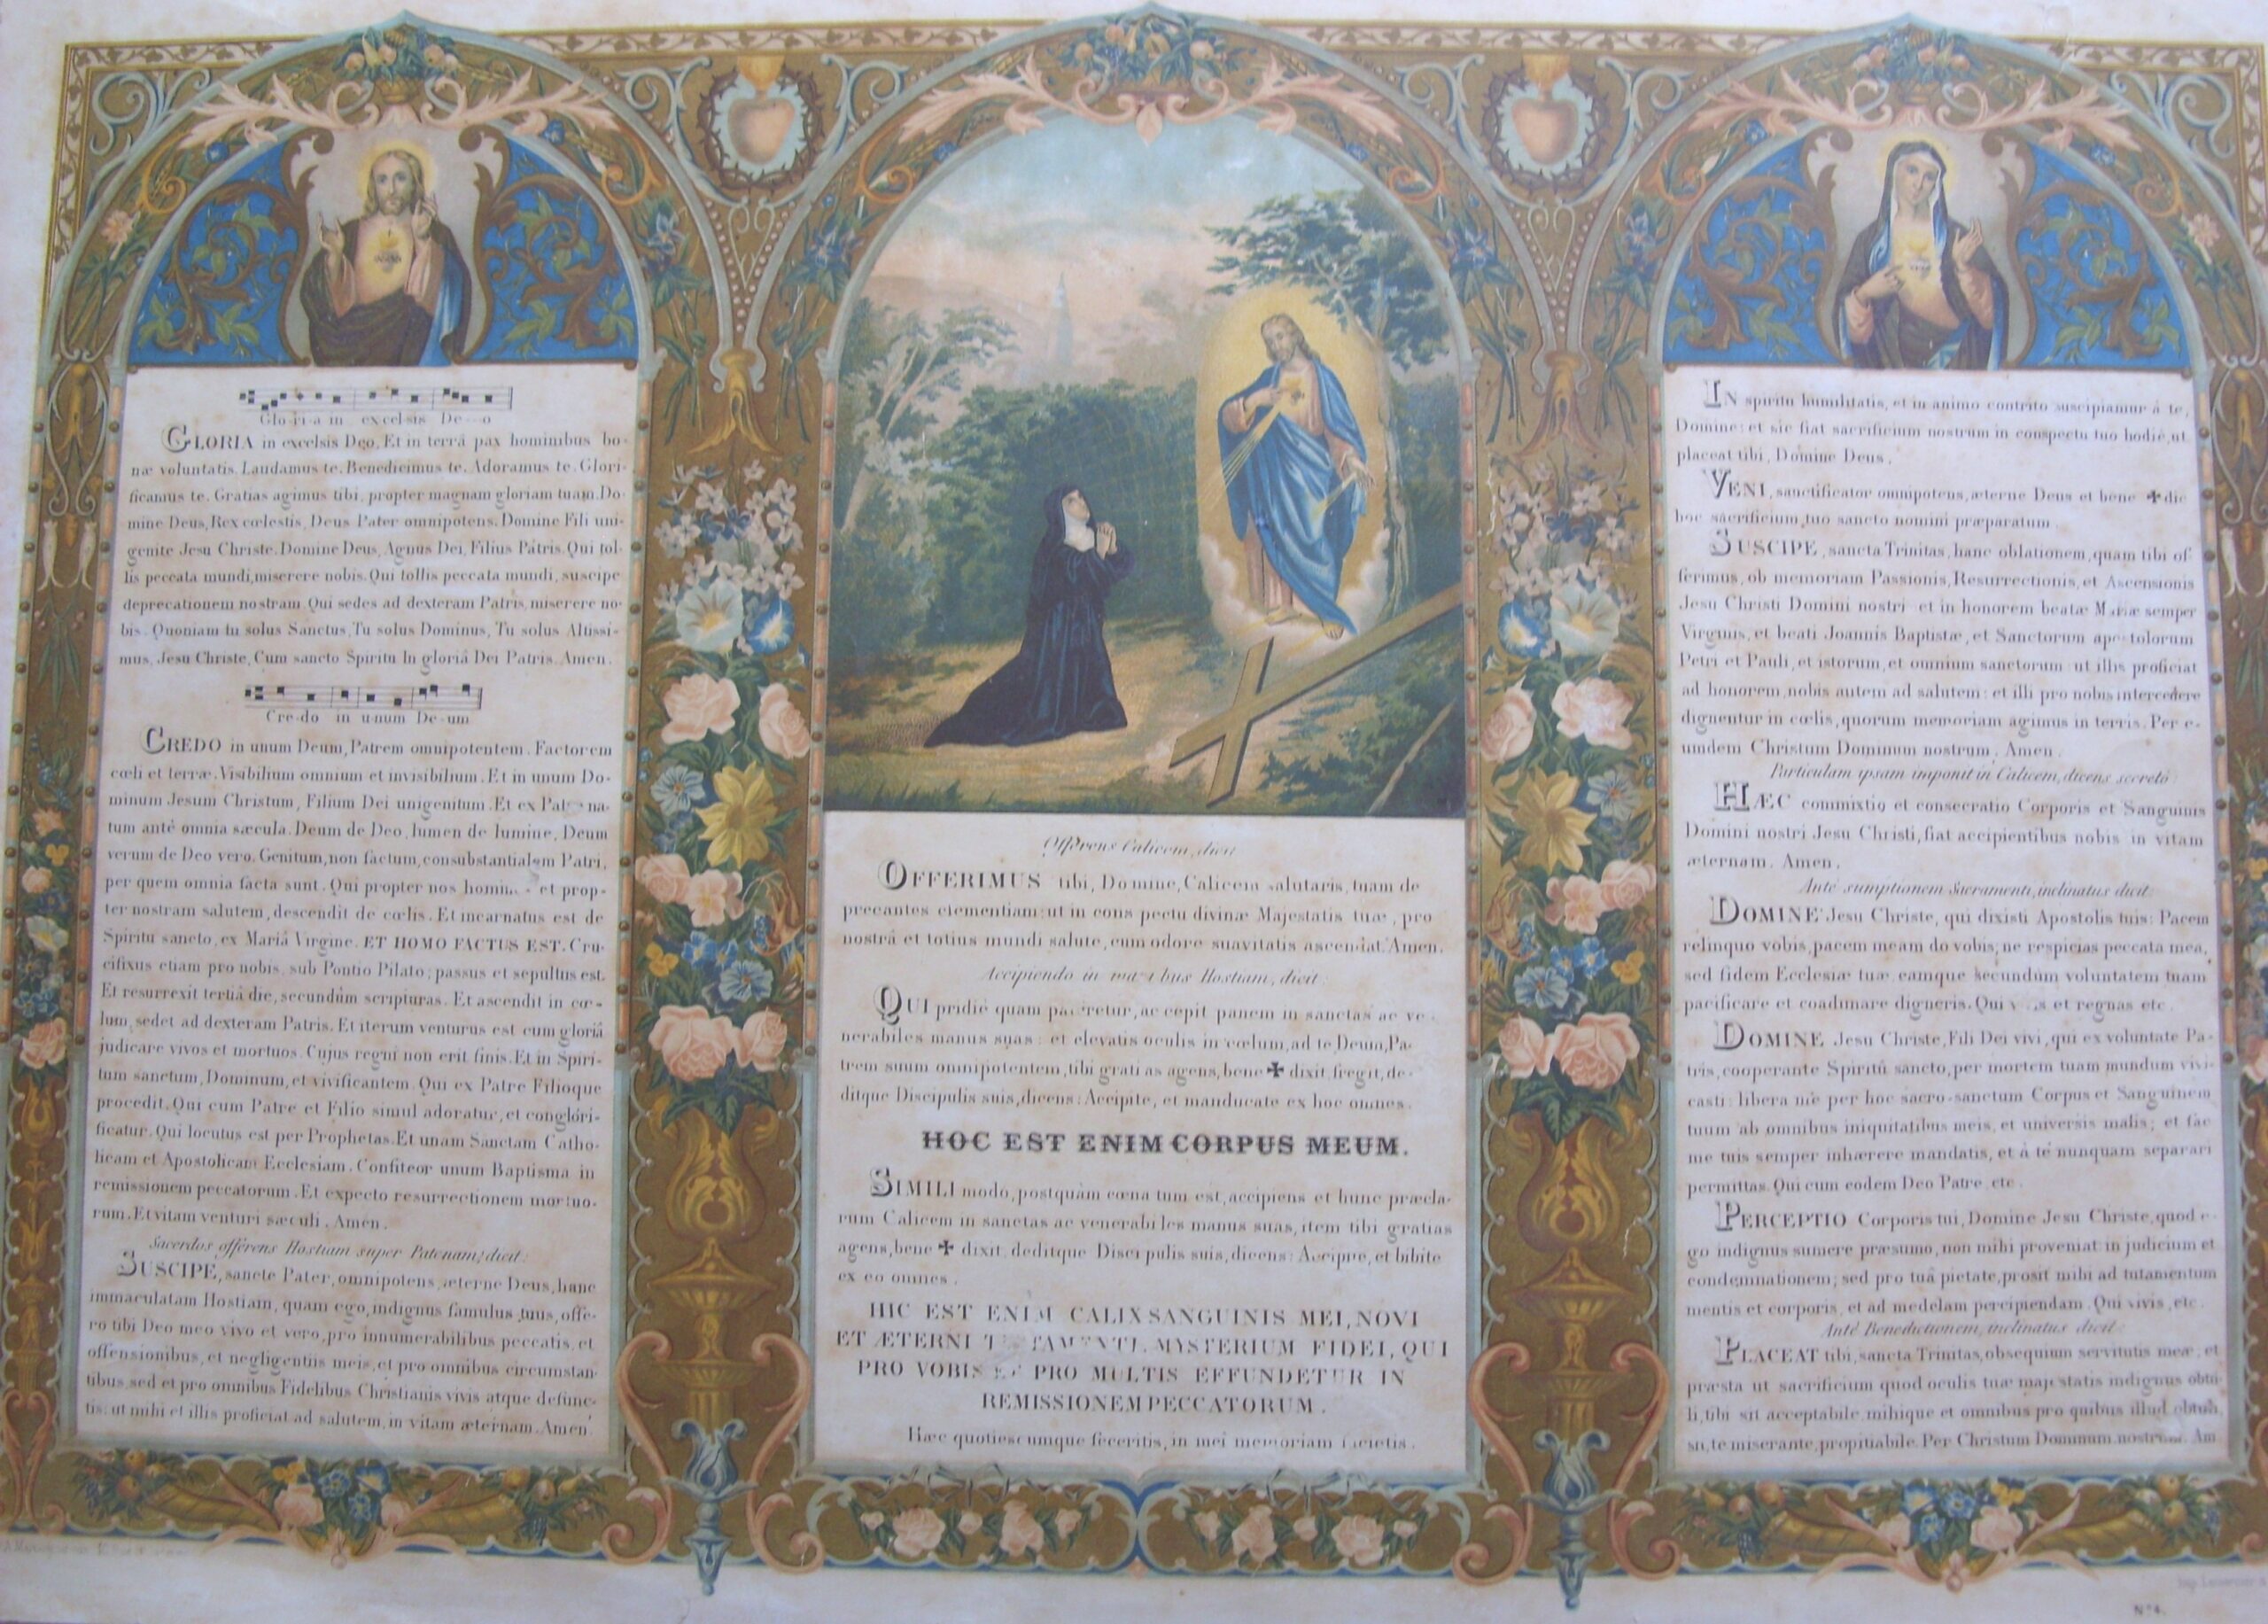 Glo-ri-a in excelsis De--o
GLORIA in excelsis Deo. Et in terrâ pax hominibus bo-
næ voluntatis. Laudamus te. Benedicimus te. Adoramus te. Glori-
ficamus te. Gratias agimus tibi, propter magnam gloriam tuam. Do-
mine Deus, Rex cœlestis, Deus Pater omnipotens. Domine Fili uni-
genite Jesu Christe. Domine Deus, Agnus Dei, Filius Pâtris. Qui tol-
lis peccata mundi, miserere nobis. Qui tollis peccata mundi, suscipe
deprecationem nostram. Qui sedes ad dexteram Patris, miserere no-
bis. Quoniam tu solus Sanctus, Tu solus Dominus, Tu solus Altissi-
mus, Jesu Christe, Cum sancto Spiritu In gloriâ Dei Patris. Amen.
Cre-do in u-num De-um
CREDO in unum Deum, Patrem omnipotentem. Factorem
cœli et terræ. Visibilium omnium et invisibilium. Et in unum Do-
minum Jesum Christum, Filium Dei unigenitum. Et ex Pat na-
tum antè omnia sæcula. Deum de Deo, lumen de lumine, Deum
verum de Deo vero. Genitum, non factum, consubstantialem Patri,
per quem omnia facta sunt. Qui propter nos homin et prop-
ter nostram salutem, descendit de cœlis. Et incarnatus est de
Spiritu sancto, ex Mariâ Virgine. ET HOMO FACTUS EST. Cru-
cifixus etiam pro nobis, sub Pontio Pilato; passus et sepultus est.
Et resurrexit tertiâ die, secundùm scripturas. Et ascendit in cœ-
lum, sedet ad dexteram Patris. Et iterum venturus est cum gloriâ
judicare vivos et mortuos. Cujus regni non erit finis. Et in Spiri-
tum sanctum, Dominum, et vivificantem. Qui ex Patre Filioque
procedit. Qui cum Patre et Filio simul adoratur, et conglori-
ficatur. Qui locutus est per Prophetas. Et unam Sanctam Catho-
licam et Apostolicam Ecclesiam. Confiteor unum Baptisma in
remissionem peccatorum. Et expecto resurrectionem mortuo-
rum. Et vitam venturi sæculi. Amen.
Sacerdos offerens Hostiam super Patenam, dicit:
SUSCIPE, sancte Pater, omnipotens, æterne Deus, hanc
immaculatam Hostiam, quam ego, indignus famulus tuus, offe-
ro tibi Deo meo vivo et vero, pro innumerabilibus peccatis, et
offensionibus, et negligentiis meis, et pro omnibus circumstan-
tibus, sed et pro omnibus Fidelibus Christianis vivis atque defunc-
tis: ut mihi et illis proficiat ad salutem, in vitam æternam. Amen.
Offerens Calicem, dicit
OFFERIMUS tibi, Domine, Calicem salutaris, tuam de
precantes clementiam: ut in cons pectu divinæ Majestatis tuæ, pro
nostrâ et totius mundi salute, cum odore suavitatis ascendat. Amen.
Accipiendo in manibus Hostiam, dicit:
QUI pridiè quam pateretur, ac cepit panem in sanctas ac ve-
nerabiles manus suas: et elevatis oculis in cœlum, ad te, Deum, Pa-
trem suum omnipotentem, tibi grati as agens, bene ✠ dixit, fregit, de-
ditque Discipulis suis, dicens: Accipite, et manducate ex hoc omnes.
HOC EST ENIM CORPUS MEUM.
SIMILI modo, postquàm cœna tum est, accipiens et hunc præcla-
rum Calicem in sanctas ac venerabiles manus suas, item tibi gratias
agens, bene ✠ dixit, deditque Disci pulis suis, dicens: Accipite, et bibite
ex eo omnes.
HIC EST ENIM CALIX SANGUINIS MEI, NOVI
ET ÆTERNI TESTAMENTI, MYSTERIUM FIDEI, QUI
PRO VOBIS ET PRO MULTIS EFFUNDETUR IN
REMISSIONEM PECCATORUM.
Hæc quotiescumque feceritis, in mei memoriam facietis.
IN spiritu humilitatis, et in animo contrito suscipiamur à te,
Domine: et sic fiat sacrificium nostrum in conspectu tuo hodiè, ut
placeat tibi, Domine Deus.
VENI, sanctificator omnipotens, æterne Deus et bene ✠ dic
hoc sacrificium, tuo sancto nomini præparatum.
SUSCIPE, sancta Trinitas, hanc oblationem, quam tibi of
ferimus, ob memoriam Passionis, Resurrectionis, et Ascensionis
Jesu Christi Domini nostri et in honorem beatæ Mariæ semper
Virginis, et beati Joannis Baptistæ, et Sanctorum apostolorum
Petri et Pauli, et istorum, et omnium sanctorum: ut illis proficiat
ad honorem, nobis autem ad salutem: et illi pro nobis intercedere
dignentur in cœlis, quorum memoriam agimus in terris. Per e-
umdem Christum Dominum nostrum. Amen.
Particulam ipsam imponit in Calicem, dicens secretò:
HÆC commixtio et consecratio Corporis et Sanguinis
Domini nostri Jesu Christi, fiat accipientibus nobis in vitam
æternam. Amen.
Antè sumptionem Sacramenti, inclinatus dicit:
DOMINE Jesu Christe, qui dixisti Apostolis tuis: Pacem
relinquo vobis, pacem meam do vobis; ne respicias peccata mea,
sed fidem Ecclesiæ tuæ eamque secundùm voluntatem tuam
pacificare et coadunare digneris. Qui et regnas etc.
DOMINE Jesu Christe, Fili Dei vivi, qui ex voluntate Pa-
tris, cooperante Spiritû sancto, per mortem tuam mundum vivi-
casti: libera me per hoc sacro-sanctum Corpus et Sanguinem
tuum ab omnibus iniquitatibus meis, et universis malis; et fac
me tuis semper inhærere mandatis, et à te nunquam separari
permittas. Qui cum eodem Deo Patre, etc.
PERCEPTIO Corporis tui, Domine Jesu Christe, quod e-
go indignus sumere præsumo, non mihi proveniat in judicium et
condemnationem; sed pro tuâ pietate, prosit mihi ad tutamentum
mentis et corporis, et ad medelam percipiendam. Qui vivis, etc.
Antè Benedictionem, inclinatus dicit:
PLACEAT tibi, sancta Trinitas, obsequium servitutis meæ; et
præsta ut sacrificium quod oculis tuæ majestatis indignus obtu-
li, tibi sit acceptabile, mihique et omnibus pro quibus illud obtuli,
sit, te miserante, propitiabile. Per Christum Dominum nostrum. Am.